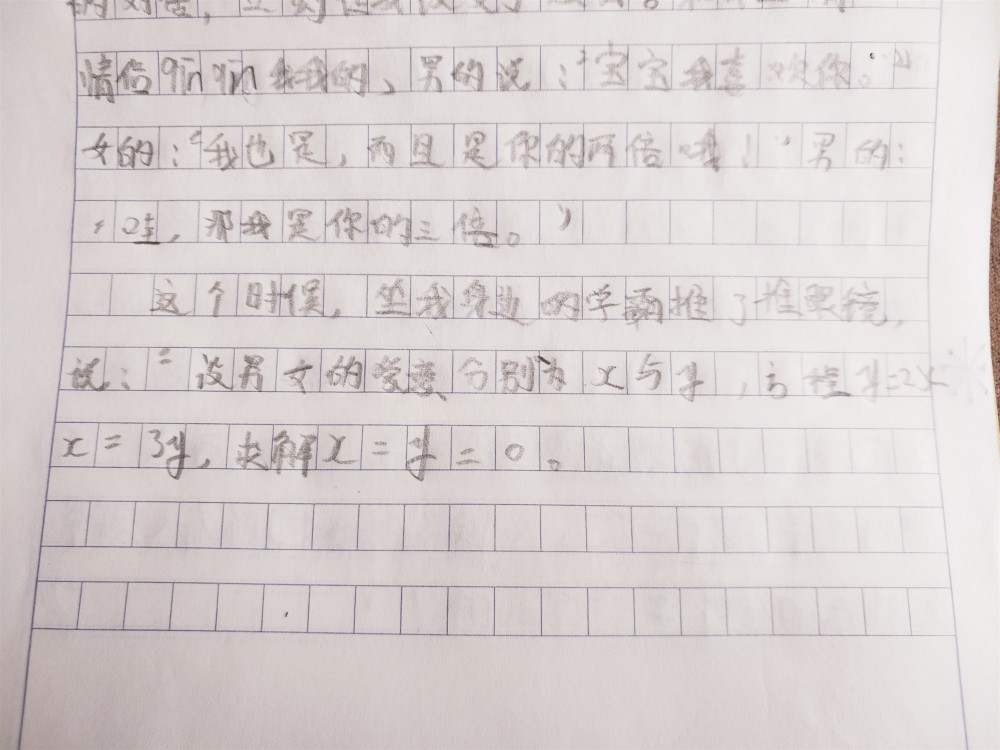 情侣qīn qīn我我的、男的说:"宝宝我喜欢你。"
女的:"我也是,而且是你的两倍哦!"男的:
"哇,那我是你的三倍。"
这个时候,坐我身边的学霸推了推眼镜,
说:"设男女的爱意分别为x与y,方程y=2x
x=3y,求解x=y=0。